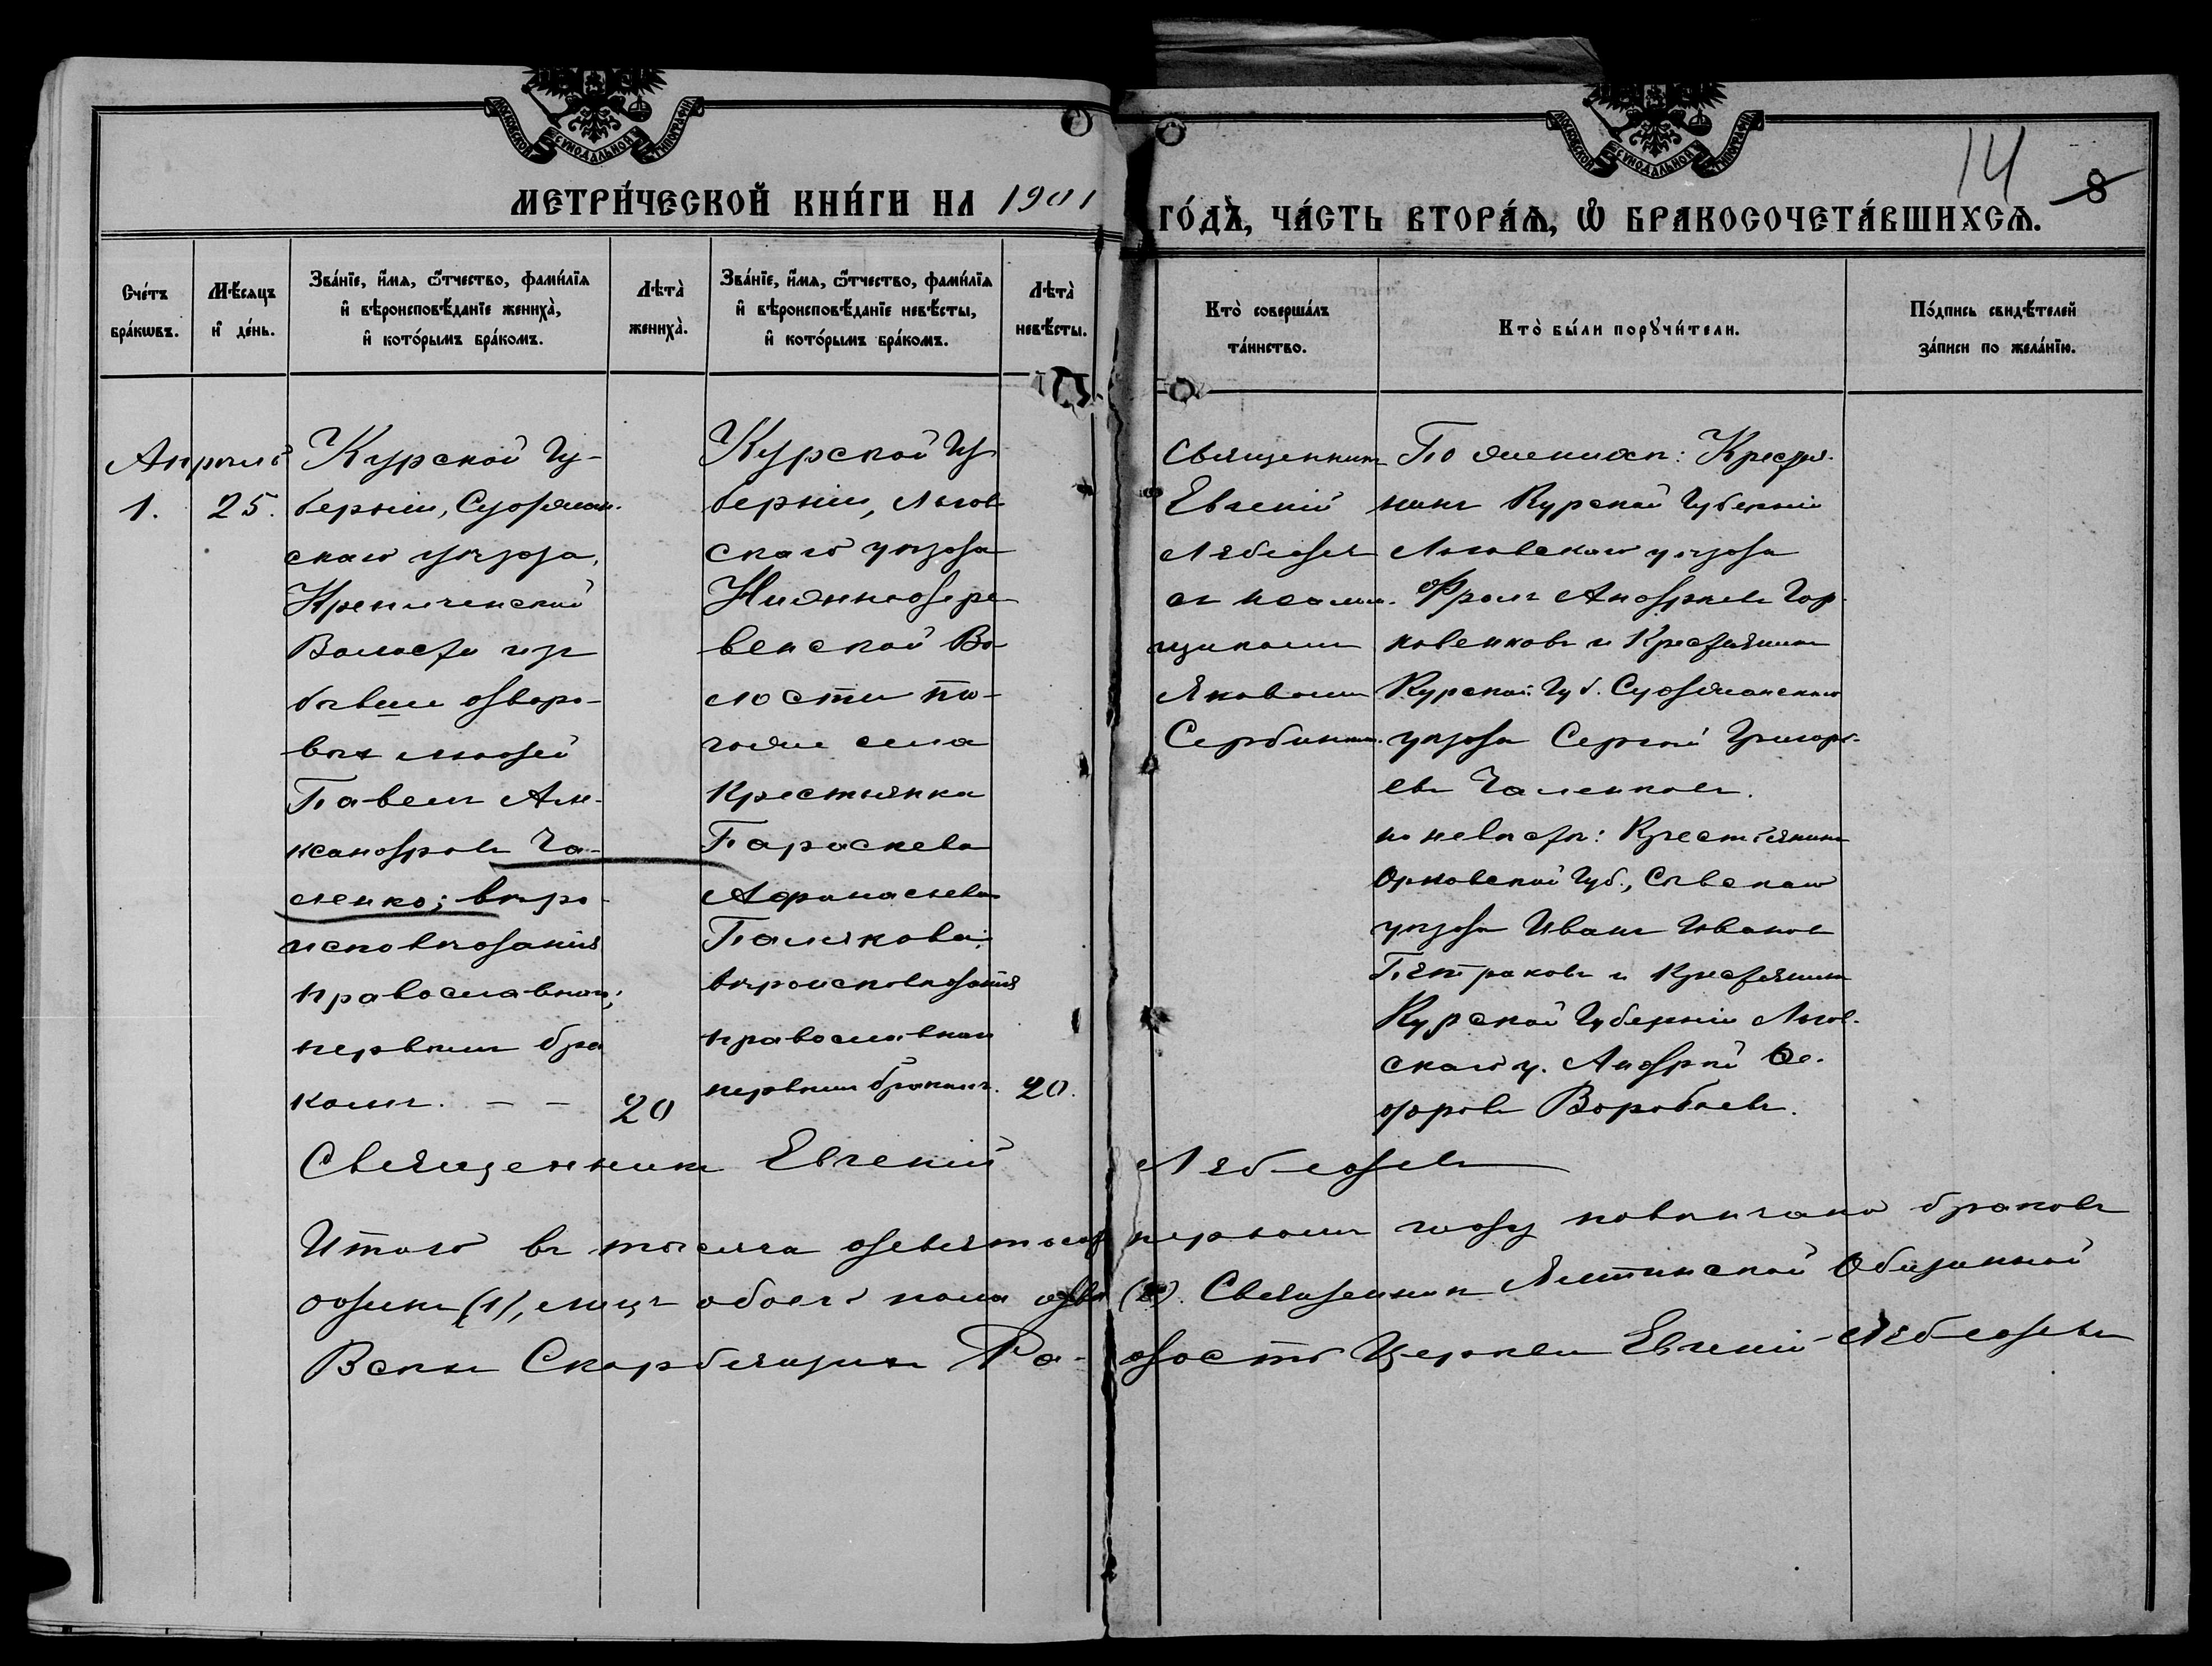 МОСКОВСКОЙ СѴНОДАЛЬНОЙ ТИПОГРАФІИ
МОСКОВСКОЙ СѴНОДАЛЬНОЙ ТИПОГРАФІИ
14 8
МЕТРИ́ЧЕСКОЙ КНИ́ГИ НА 1901
ГО́ДЪ, ЧА́СТЬ ВТОРА́Ѧ, Ѡ҆ БРАКОСОЧЕТА́ВШИХСѦ.
Сче́тъ
бра́кѡвъ.
Мѣ́сѧцъ
и҆ де́нь.
Зва́нїе, и҆́мѧ, ѻ҆́тчество, фами́лїѧ
и҆ вѣроисповѣ́данїе жениха̀,
и҆ кото́рымъ бра́комъ.
Лѣта̀
жениха̀.
Зва́нїе, и҆́мѧ, ѻ҆́тчество, фами́лїѧ
и҆ вѣроисповѣ́данїе невѣ́сты,
и҆ кото́рымъ бра́комъ.
Лѣта̀
невѣ́сты.
Кто̀ соверша́лъ
та́инство.
Кто̀ бы́ли порꙋчи́тели.
По́дпись свидѣ́телей
за́писи по жела́нїю.
Апрѣль
1.
25.
Курской Гу-
берніи, Суджан-
скаго уѣзда,
Волости изъ
бывш. дворо-
выхъ людей
Павелъ Але-
ксандровъ Ча-
ленко; вѣро-
исповѣданія
православнаго;
первымъ бра
комъ. — —
20
Курской Гу
берніи, Льгов
скаго уѣзда
Нижнедере
венской Во-
лости то-
гоже села
крестьянка
Параскева
Афанасьева
Полякова;
вѣроисповѣданія
православнаго
первымъ бракомъ.
20.
Священникъ
Евгеній
съ псалом-
щикомъ
Яковомъ
По женихѣ: Крестья-
нинъ Курской Губерніи
Льговскаго уѣзда
Фролъ Андреевъ Гор-
ковенковъ и Крестьянинъ
Курской Губ. Суджанскаго
уѣзда Сергѣй Григорь-
евъ Чаленковъ.
по невѣстѣ: Крестьянинъ
Орловской Губ., Сѣвскаго
уѣзда Иванъ Ивановъ
Петраковъ и Крестьянинъ
Курской Губерніи Льгов-
скаго у. Андрей Ѳе-
доровъ Воробьевъ.
Священникъ Евгеній
Итого въ тысяча девятьсотъ первомъ году повѣнчано браковъ
одинъ (1), лицъ обоего пола два (2). Священникъ Ялтинской Общинной
Всѣхъ Скорбящихъ Радость Церкви Евгеній